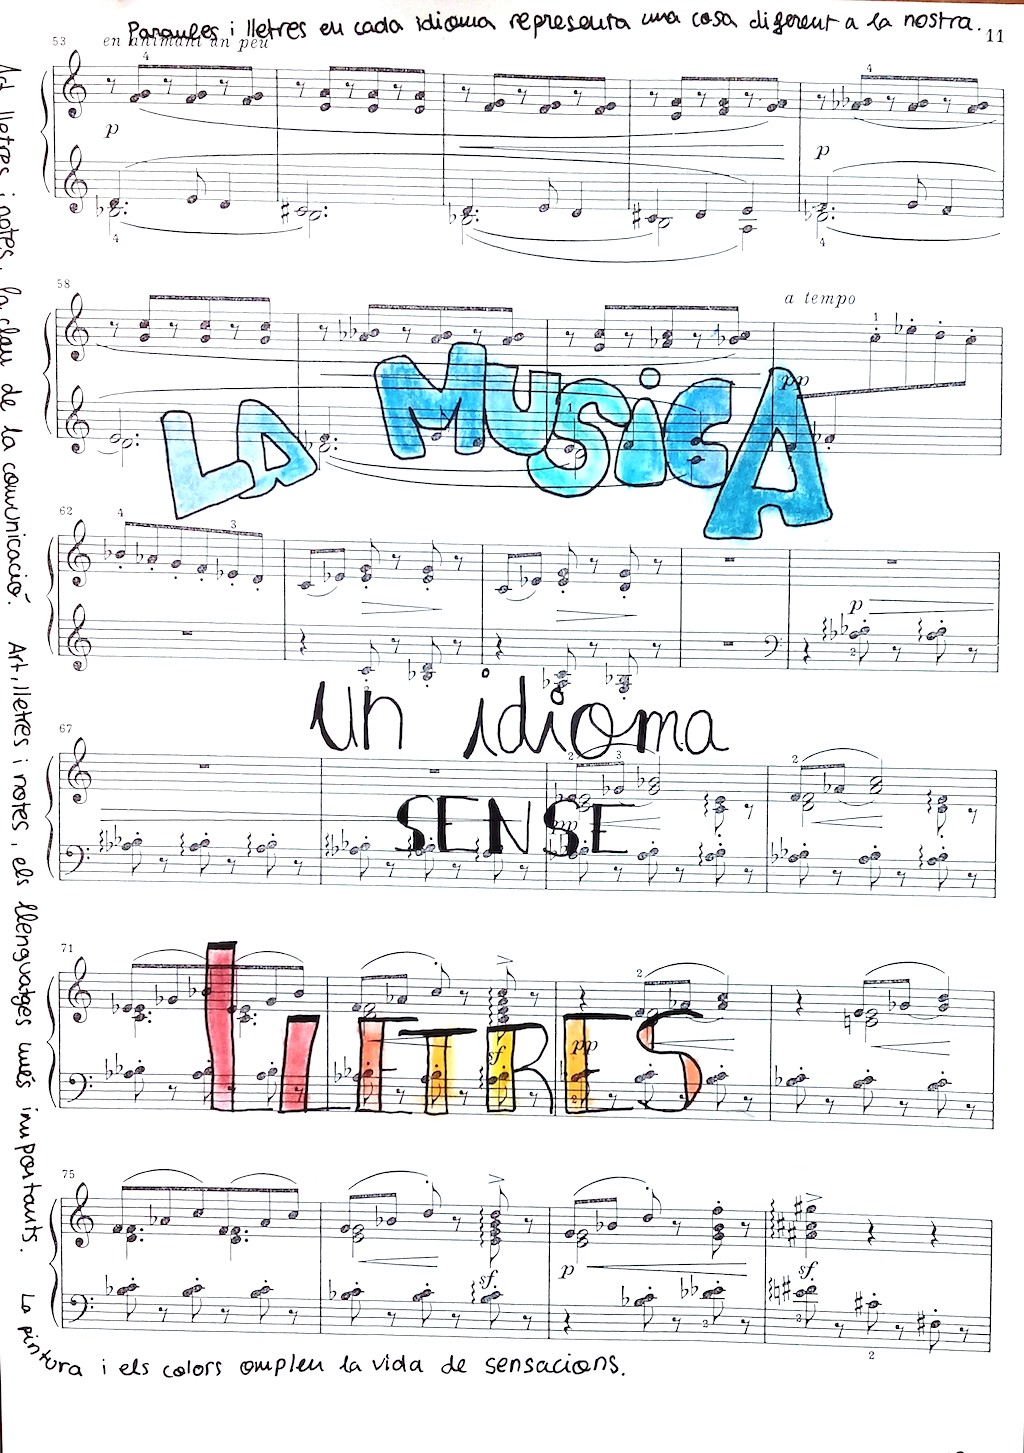 Paraules i lletres en cada idioma representa una cosa diferent a la nostra.
11
53
en animant un peu
4
4
p
p
4
4
58
a tempo
1
pp
LA MUSICA
62
4
3
p
2
un idioma
SENSE
67
2
3
2
71
2
LLETRES
sf
pp
2
75
sf
p
sf
2
3
2
Art, lletres i notes, la clau de la comunicació. Art, lletres i notes, els llenguatges més importants. La pintura i els colors omplen la vida de sensacions.